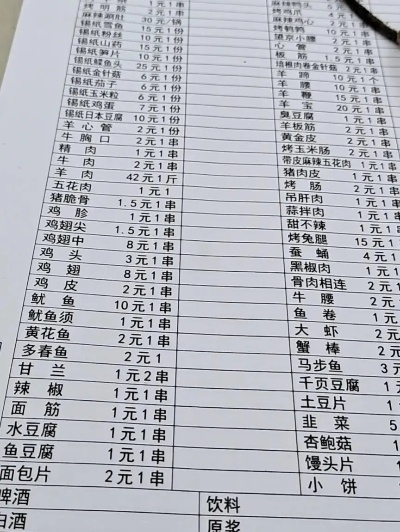 麻辣涮肚 30元/锅
锡纸雪鱼 15元1份
锡纸粉丝 10元1份
锡纸山药 15元1份
锡纸笋片 10元1份
锡纸鳕鱼头 25元1份
锡纸金针菇 6元1份
锡纸茄子 6元1份
锡纸玉米粒 6元1份
锡纸鸡蛋 7元1份
锡纸日本豆腐 10元1份
羊心管 2元1串
牛胸口 2元1串
精肉 1元1串
牛肉 2元1串
羊肉 42元1斤
五花肉 1元1
猪脆骨 1.5元1串
鸡胗 1元1串
鸡翅尖 1.5元1串
鸡翅中 8元1串
鸡头 3元1串
鸡翅 8元1串
鸡皮 2元1串
鱿鱼 10元1串
鱿鱼须 1元1串
黄花鱼 2元1串
多春鱼 2元1
甘兰 1元2串
辣椒 1元1串
面筋 1元1串
水豆腐 1元1串
鱼豆腐 1元1串
面包片 2元1串
麻辣鸭头
烤鸡爪
麻辣鸡心
烤鹌鹑
望京小腰 2元1串
心管 2元1串
板筋 1.5元1串
培根肉卷金针菇 2元1串
羊蹄 10元1个
羊腰 10元1串
羊鞭 15元1串
羊宝 20元1串
臭豆腐 1元1串
羊板筋 2元1串
黄金皮 2元1串
烤玉米肠 2元1串
带皮麻辣五花肉 1元1串
猪肉皮 1元1串
烤肠 2元1串
吊肝肉 1元1串
蒜拌肉 1元1串
甜不辣 1元1串
烤兔腿 15元1
蚕蛹 4元1串
黑椒肉 1元1串
骨肉相连 2元1串
牛腰 2元1串
鱼卷 1元1
大虾 2元
蟹棒 2元
马步鱼 3元
千页豆腐 1元
土豆片 1元
韭菜 5
杏鲍菇 1
馒头片 1元
小饼 1元
啤酒 饮料
白酒 原浆